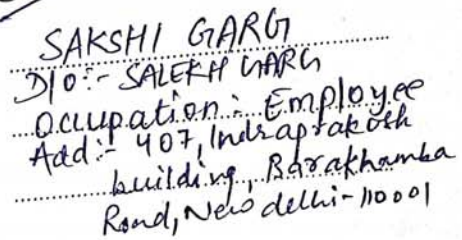 SAKSHI GARG
D/O:- SALEKH GARG
Occupation:- Employee
Add:- 407, Indraprakash
building, Barakhamba
Road, New delhi-110001